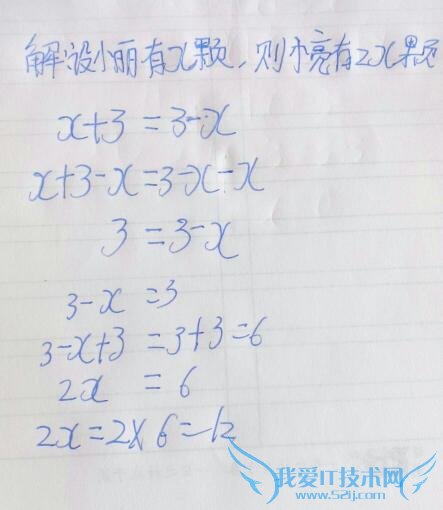 解:设小丽有x颗,则小亮有2x颗
x+3=3-x
x+3-x=3-x-x
3=3-x
3-x=3
3-x+3=3+3=6
2x=6
2x=2×6=12
我爱IT技术网
www.52ij.com